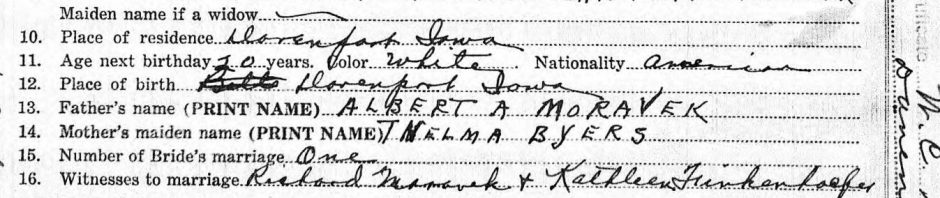 Maiden name if a widow
10. Place of residence Davenport Iowa
11. Age next birthday 20 years. Color White Nationality American
12. Place of birth Davenport Iowa
13. Father's name (PRINT NAME) ALBERT A MORAVEK
14. Mother's maiden name (PRINT NAME) THELMA BYERS
15. Number of Bride's marriage One
16. Witnesses to marriage Richard Moravek & Kathleen